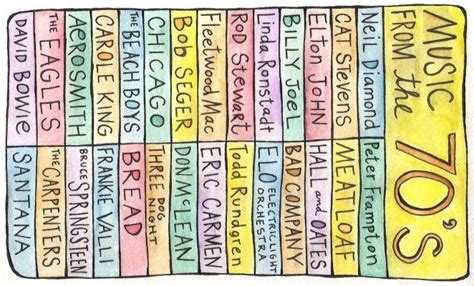 MUSIC
FROM the
70'S
Neil Diamond
CAT Stevens
ELTON JOHN
BILLY JOEL
Linda Ronstadt
Rod Stewart
Fleetwood Mac
Bob SEGER
CHICAGO
THE BEACH BOYS
CAROLE KING
AEROSMITH
THE EAGLES
DAVID BOWIE
Peter Frampton
MEATLOAF
HALL and OATES
BAD COMPANY
ELO ELECTRIC LIGHT
ORCHESTRA
Todd Rundgren
ERIC CARMEN
DON McLEAN
THREE DOG
NIGHT
BREAD
FRANKIE VALLI
BRUCE SPRINGSTEEN
THE CARPENTERS
SANTANA